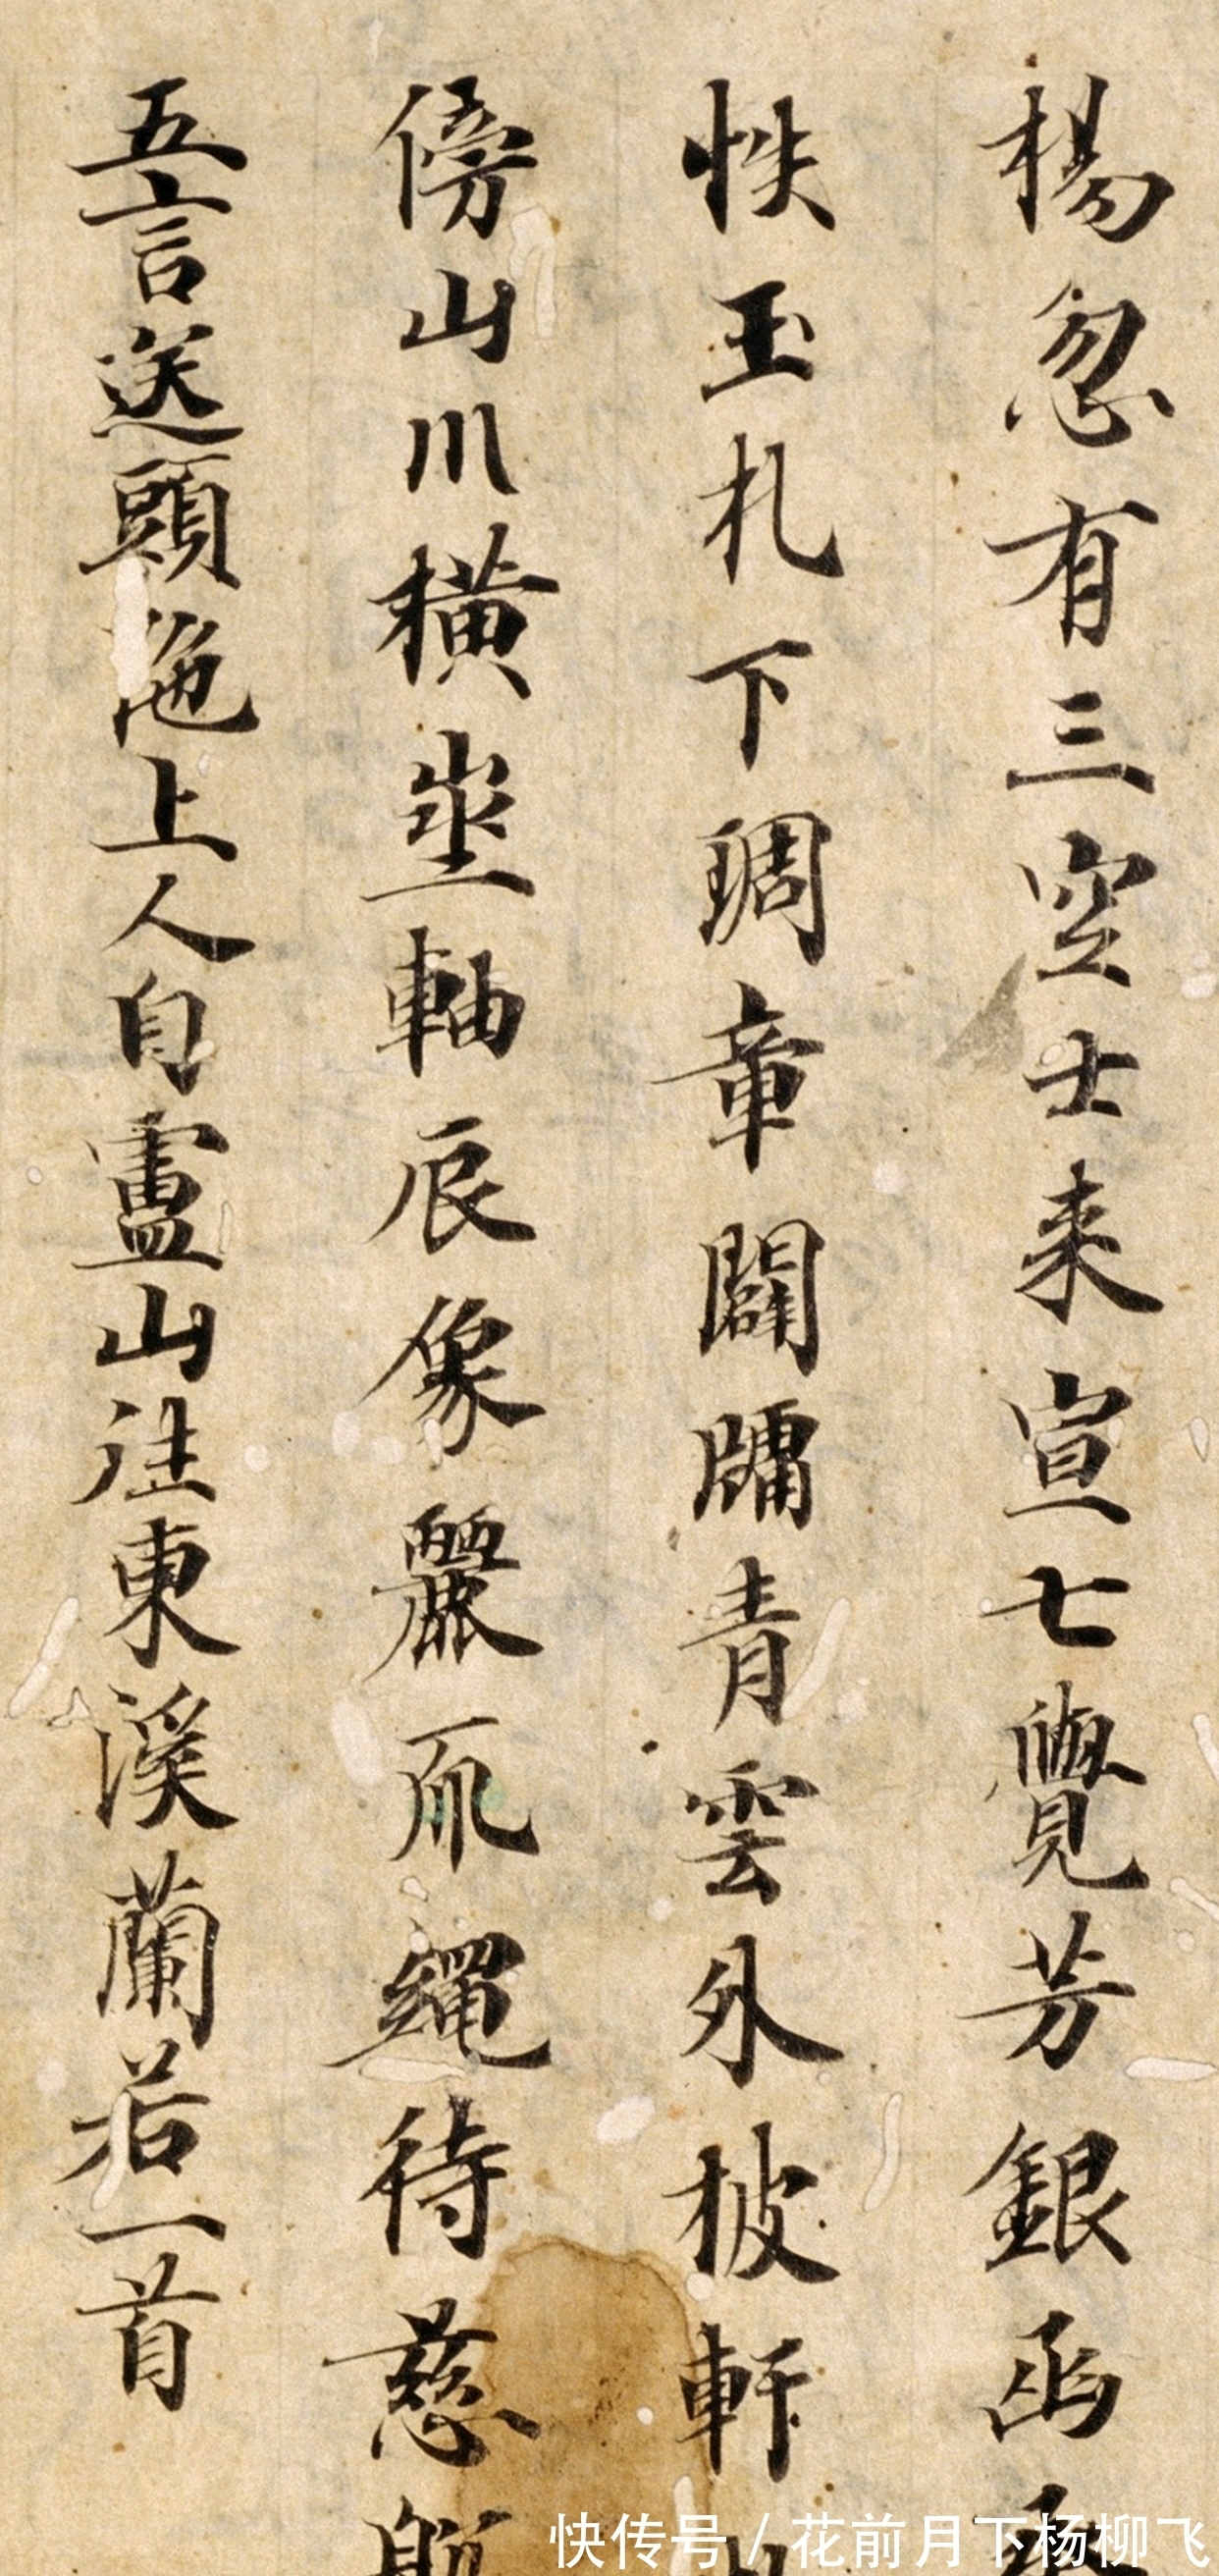 楊忽有三空士来宣七覺芳銀函
帙玉札下琱章闢牖青雲外披軒
傍山川橫坐軸辰像麗爪繩待慈
五言送頭陁上人自廬山往東溪蘭若一首
快传号 / 花前月下杨柳飞